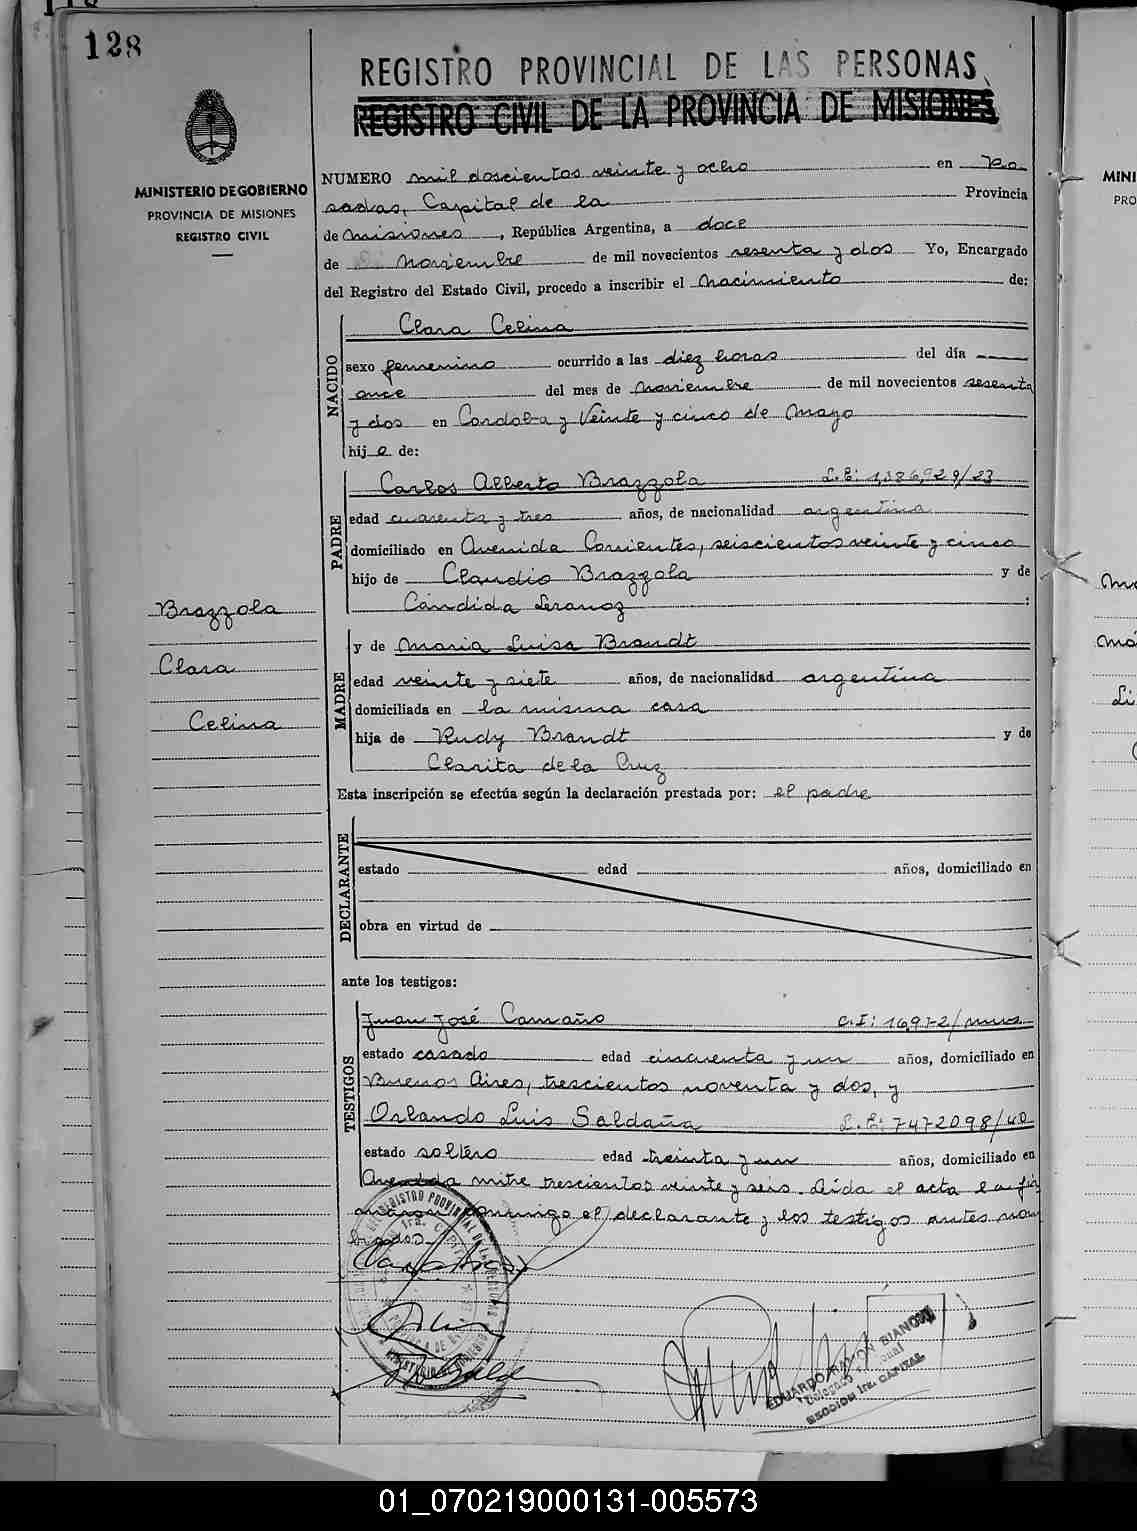 128
REGISTRO PROVINCIAL DE LAS PERSONAS
REGISTRO CIVIL DE LA PROVINCIA DE MISIONES
MINISTERIO DE GOBIERNO
PROVINCIA DE MISIONES
REGISTRO CIVIL
NUMERO mil doscientos veinte y ocho en Po
sadas, Capital de la Provincia
de Misiones, República Argentina, a doce
de Noviembre de mil novecientos sesenta y dos Yo, Encargado
del Registro del Estado Civil, procedo a inscribir el nacimiento de:
NACIDO
Clara Celina
sexo femenino ocurrido a las diez horas del día
once del mes de Noviembre de mil novecientos sesenta
y dos en Cordoba y Veinte y cinco de Mayo
hija de:
PADRE
Carlos Alberto Brazzola L.E: 1,386,929/23
edad cuarenta y tres años, de nacionalidad argentina
domiciliado en Avenida Corrientes, seiscientos veinte y cinco
hijo de Claudio Brazzola y de
Cándida :
Brazzola
Clara
Celina
MADRE
y de Maria Luisa Brandt
edad veinte y siete años, de nacionalidad argentina
domiciliada en la misma casa
hija de Rudy Brandt y de
Clarita de la Cruz
Esta inscripción se efectúa según la declaración prestada por: el padre
DECLARANTE
estado edad años, domiciliado en
obra en virtud de
ante los testigos:
TESTIGOS
Juan José Camaño C.I:
estado casado edad cincuenta y un años, domiciliado en
Buenos Aires, trescientos noventa y dos, y
Orlando Luis Saldaña L.E: 7472098/40
estado soltero edad treinta y un años, domiciliado en
Avenida mitre trescientos veinte y seis. Leída el acta la fir
maron conmigo el declarante y los testigos antes nom
brados.
EDUARDO RAMON BIANCHI
Delegado
SECCION 1ra. CAPITAL
01_070219000131-005573